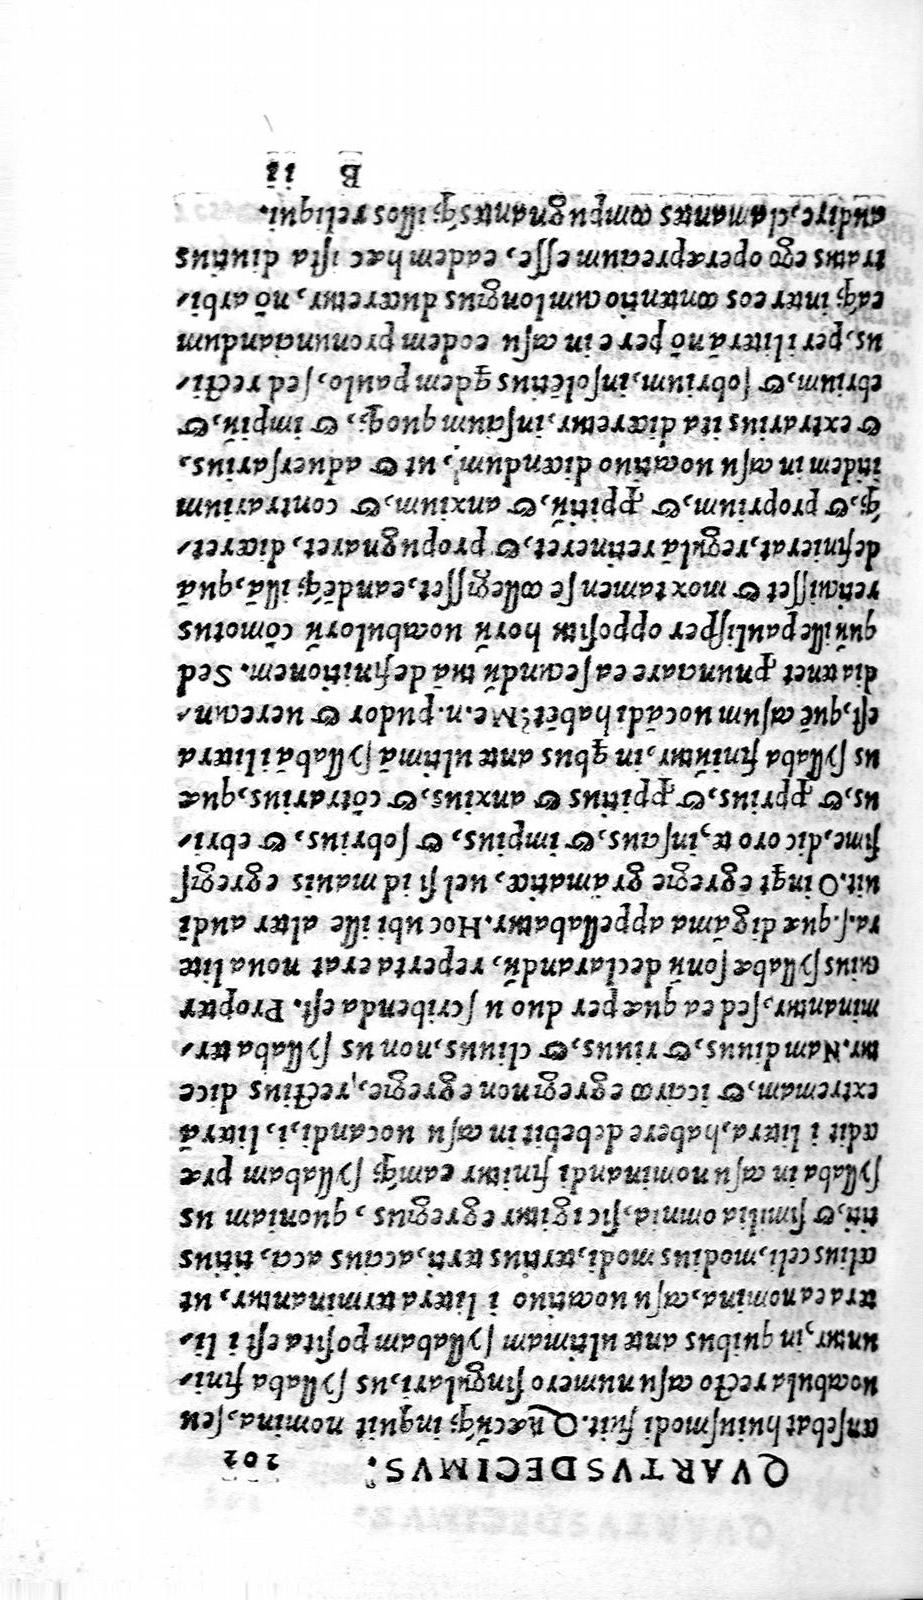 QVARTVSDECIMVS. 202
ansebat huiusmodi fuit. Quæcūq; inquit nomina, seu
uocabula recto casu numero singulari, us syllaba fini-
untur, in quibus ante ultimam syllabam posita est i li-
tera ea nomina, casu uocatiuo i litera terminantur, ut
cælius celi, modius modi, tertius terti, accius acci, titius
titi, & similia omnia, sic igitur egregius, quoniam us
syllaba in casu nominandi finitur eamq́; syllabam præ
cedit i litera, habere debebit in casu uocandi, i, literā
extremam, & icirco egregi non egregie, rectius dice
tur. Nam diuus, & riuus, & cliuus, non us syllaba ter-
minantur, sed ea quæ per duo u scribenda est. Propter
cuius syllabæ sonū declarandū, reperta erat noua lite
ra. f. quæ digāma appellabatur. Hoc ubi ille alter audi
uit. O inqt egregie grāmatice, uel si id mauis egregis
sime, dic oro te, inscius, & impius, & sobrius, & ebri-
us, & ꝓprius, & ꝓpitius & anxius, & cōtrarius, quæ
us syllaba finiūtur, in qbus ante ultimā syllabā i litera
est, quē casum uocādi habēt? Me. n. pudor & uerecun-
dia tenet ꝓnunciare ea secundū tuā definitionem. Sed
qnū ille paulisper oppositu horū uocabulorū cōmotus
reticuisset & mox tamen se collegisset, eandēq; illā, quā
definierat, regulā retineret, & propugnaret, diceret-
q́;, & proprium, & ꝓpitiū, & anxium, & contrarium
itidem in casu uocatiuo dicendum, ut & aduersarius,
& extrarius ita diceretur, inscium quoq;, & impiū, &
ebrium, & sobrium, insolētius qdem paulo, sed recti-
us, per i literā nō per e in casu eodem pronunciandum
eaq́; inter eos contentio cum longius duceretur, nō arbi-
tratus ego operæprecium esse, eadem hæc ista diutius
audire, clamantes compugnantesq́; illos reliqui.
B ii